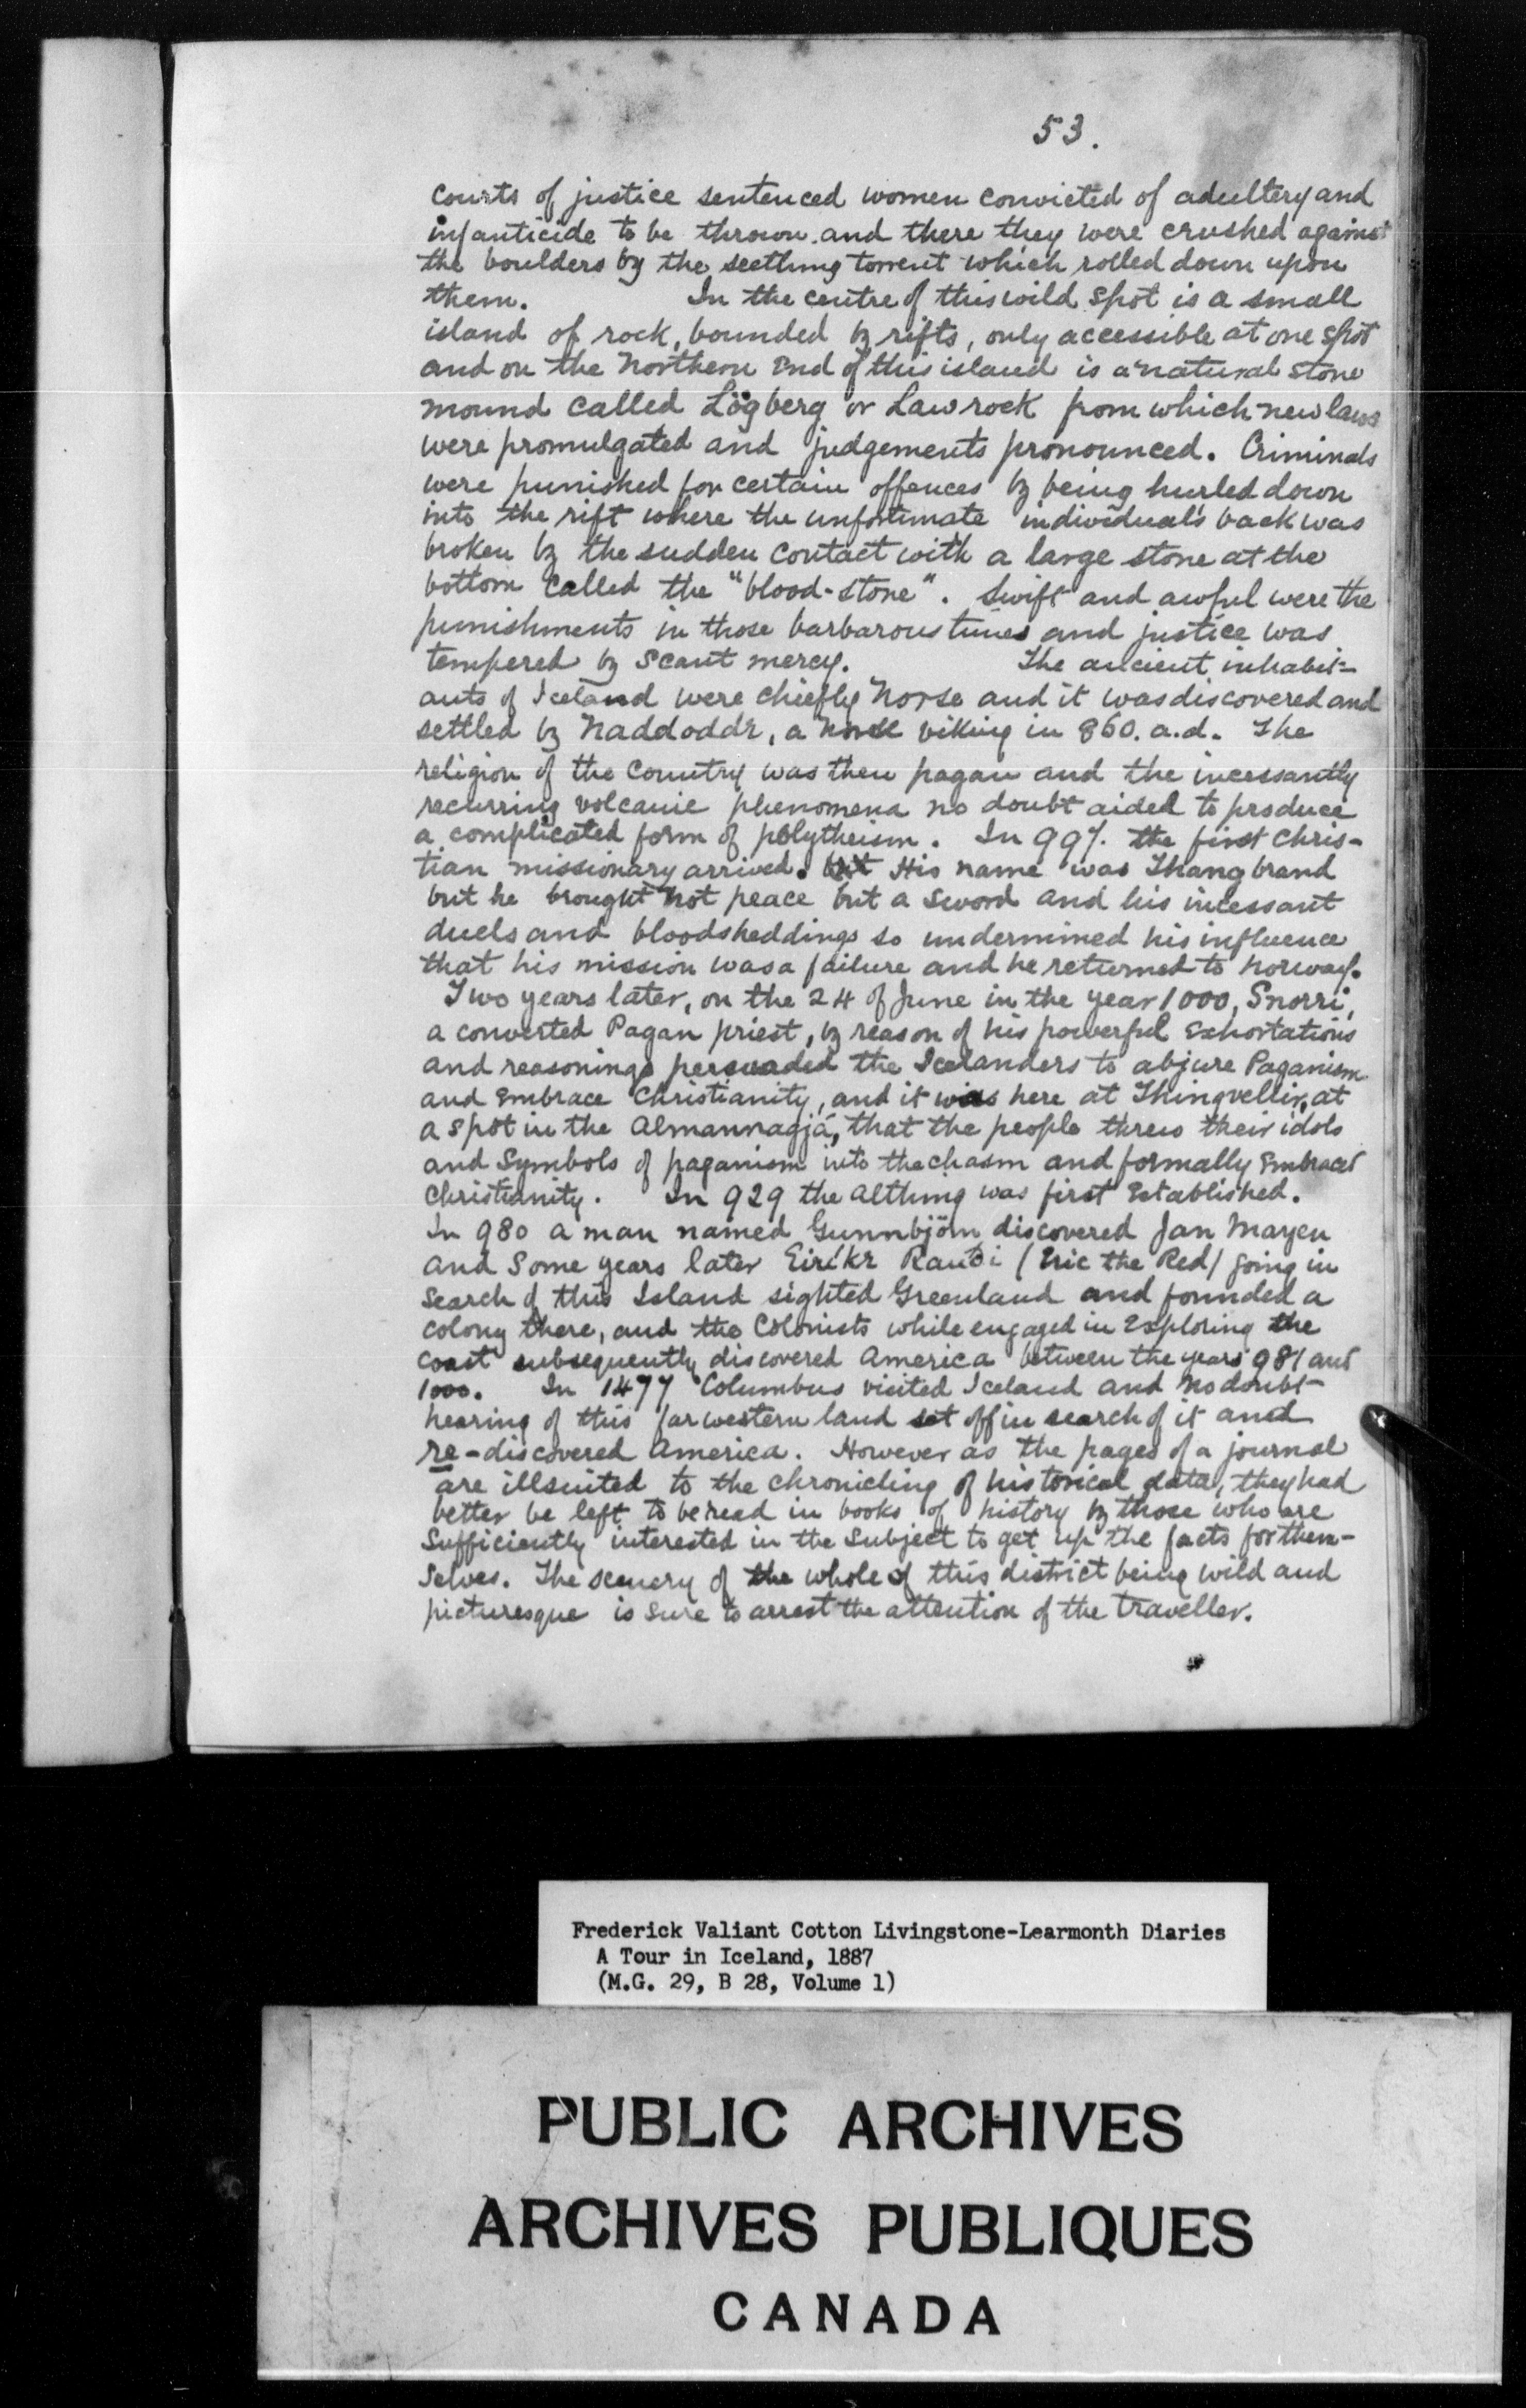 53.
Courts of justice sentenced women convicted of adultery and
infanticide to be thrown and there they were crushed against
the boulders by the seething torrent which rolled down upon
them. In the centre of this wild spot is a small
island of rock, bounded by rifts, only accessible at one spot
and on the Northern End of this island is a natural stone
mound called Lögberg or Law rock from which new laws
were promulgated and judgements pronounced. Criminals
were punished for certain offences by being hurled down
into the rift where the unfortunate individual's back was
broken by the sudden contact with a large stone at the
bottom called the "blood-stone". Swift and awful were the
punishments in those barbarous times and justice was
tempered by scant mercy. The ancient inhabit-
ants of Iceland were chiefly Norse and it was discovered and
settled by Naddoddr, a Norse viking in 860. a.d. The
religion of the Country was then pagan and the incessantly
recurring volcanic phenomena no doubt aided to produce
a complicated form of polytheism. In 997. the first Chris-
tian missionary arrived. His name was Thangbrand
but he brought not peace but a sword and his incessant
duels and bloodsheddings so undermined his influence
that his mission was a failure and he returned to Norway.
Two years later, on the 24 of June in the year 1000, Snorri,
a converted Pagan priest, by reason of his powerful exhortations
and reasonings persuaded the Icelanders to abjure Paganism
and Embrace Christianity, and it was here at Thingvellir, at
a spot in the Almannagjá, that the people threw their idols
and Symbols of paganism into the chasm and formally Embraced
Christianity. In 929 the Althing was first Established.
In 980 a man named Gunnbjörn discovered Jan Mayen
and Some years later Eiríkr Rauði (Eric the Red) going in
Search of this Island sighted Greenland and founded a
colony there, and the Colonists while engaged in Exploring the
coast subsequently discovered America between the years 981 and
1000. In 1477 Columbus visited Iceland and no doubt
hearing of this far western land set off in search of it and
re-discovered America. However as the pages of a journal
are illsuited to the chronicling of historical data, they had
better be left to be read in books of history by those who are
Sufficiently interested in the Subject to get up the facts for them-
selves. The scenery of the whole of this district being wild and
picturesque is sure to arrest the attention of the traveller.
Frederick Valiant Cotton Livingstone-Learmonth Diaries
A Tour in Iceland, 1887
(M.G. 29, B 28, Volume 1)
PUBLIC ARCHIVES
ARCHIVES PUBLIQUES
CANADA